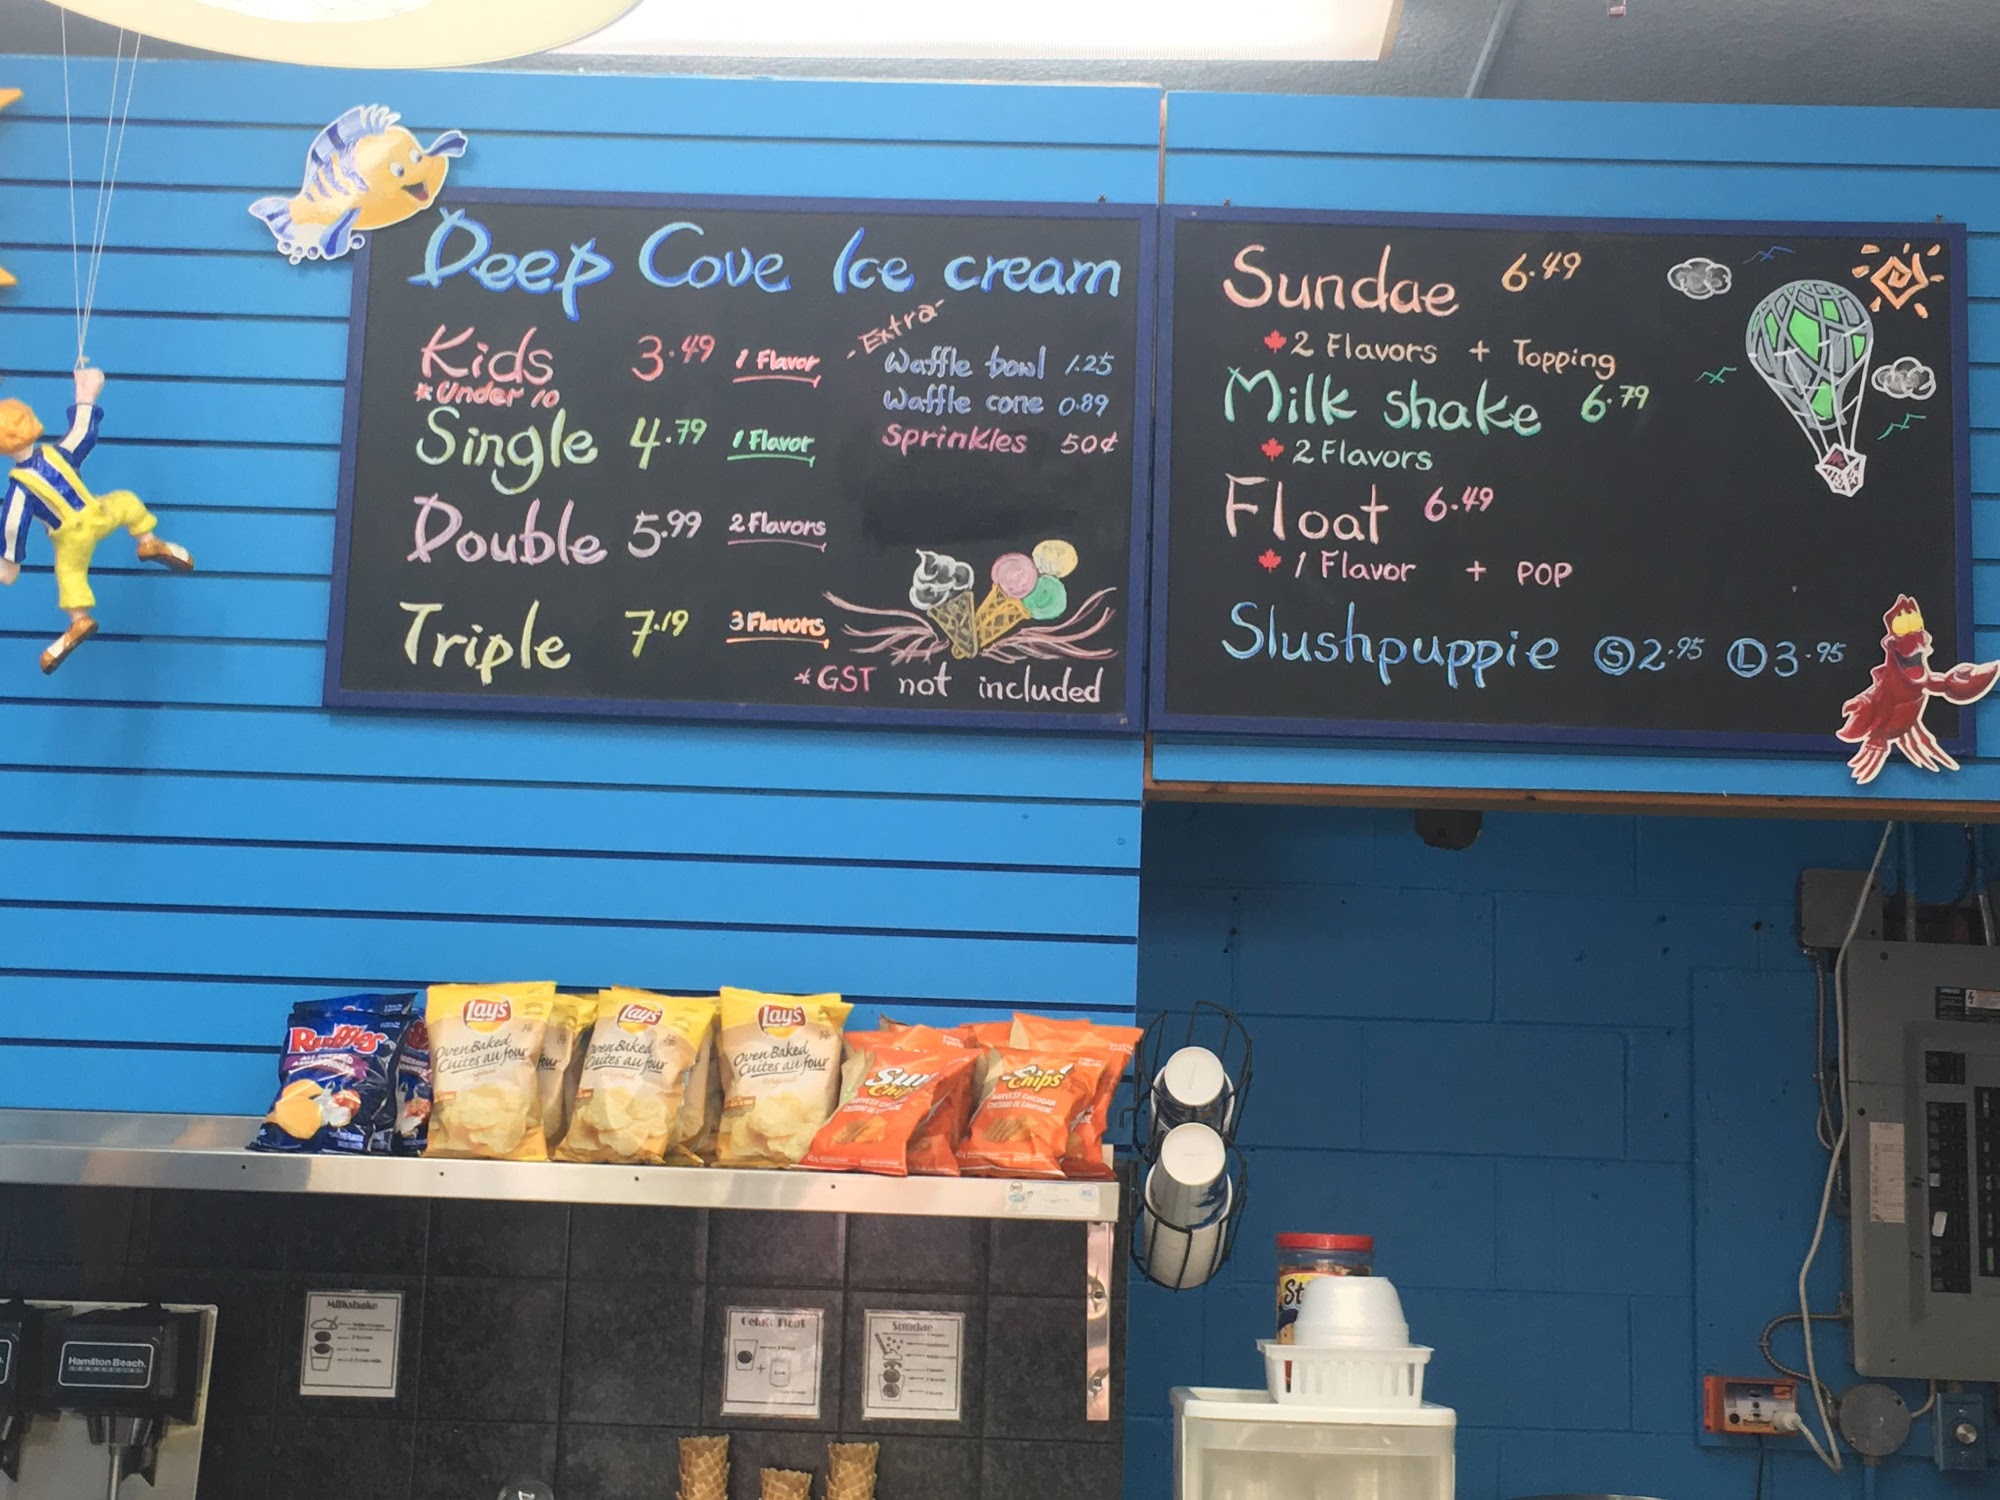 Deep Cove Ice cream
Kids 3.49 1 Flavor
*Under 10
Single 4.79 1 Flavor
Double 5.99 2 Flavors
Triple 7.19 3 Flavors
-Extra-
Waffle bowl 1.25
Waffle cone 0.89
Sprinkles 50¢
*GST not included
Sundae 6.49
2 Flavors + Topping
Milk shake 6.79
2 Flavors
Float 6.49
1 Flavor + POP
Slushpuppie Ⓢ 2.95 Ⓛ 3.95
Ruffles
ALL DRESSED
Lay's
Oven Baked
Cuites au four
Original
Lay's
Oven Baked
Cuites au four
Original
Lay's
Oven Baked
Cuites au four
Original
Sun
Chips
HARVEST CHEDDAR
CHEDDAR DE CAMPAGNE
Chips
HARVEST CHEDDAR
CHEDDAR DE CAMPAGNE
Milkshake
Sundae
Hamilton Beach
COMMERCIAL
St